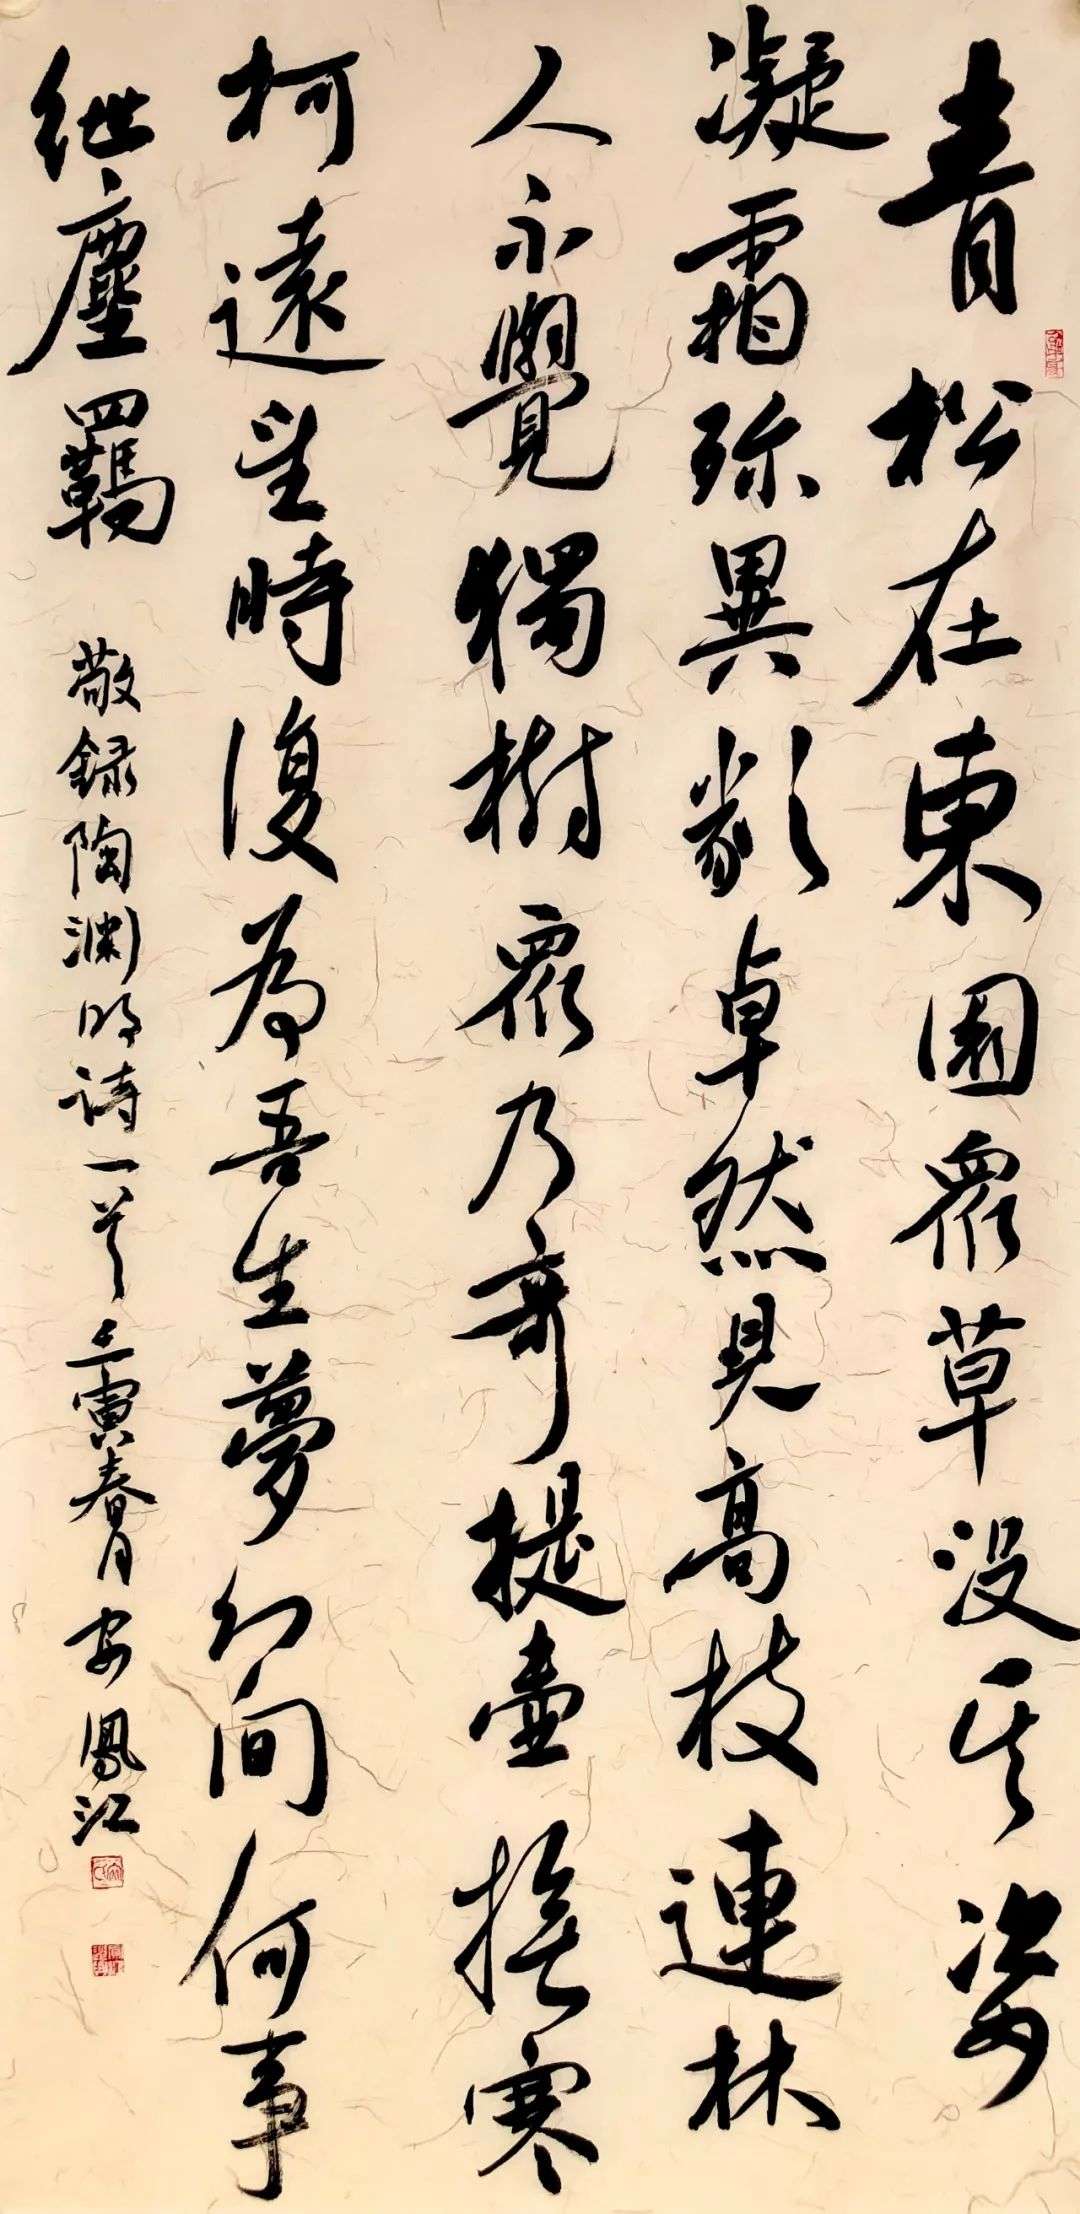 青松在東園眾草沒其姿
凝霜殄異類卓然見高枝連林
人不覺獨樹眾乃奇提壺撫寒
柯遠望時復為吾生夢幻間何事
紲塵羈 敬録陶渊明诗一首 壬寅春月安鳳江